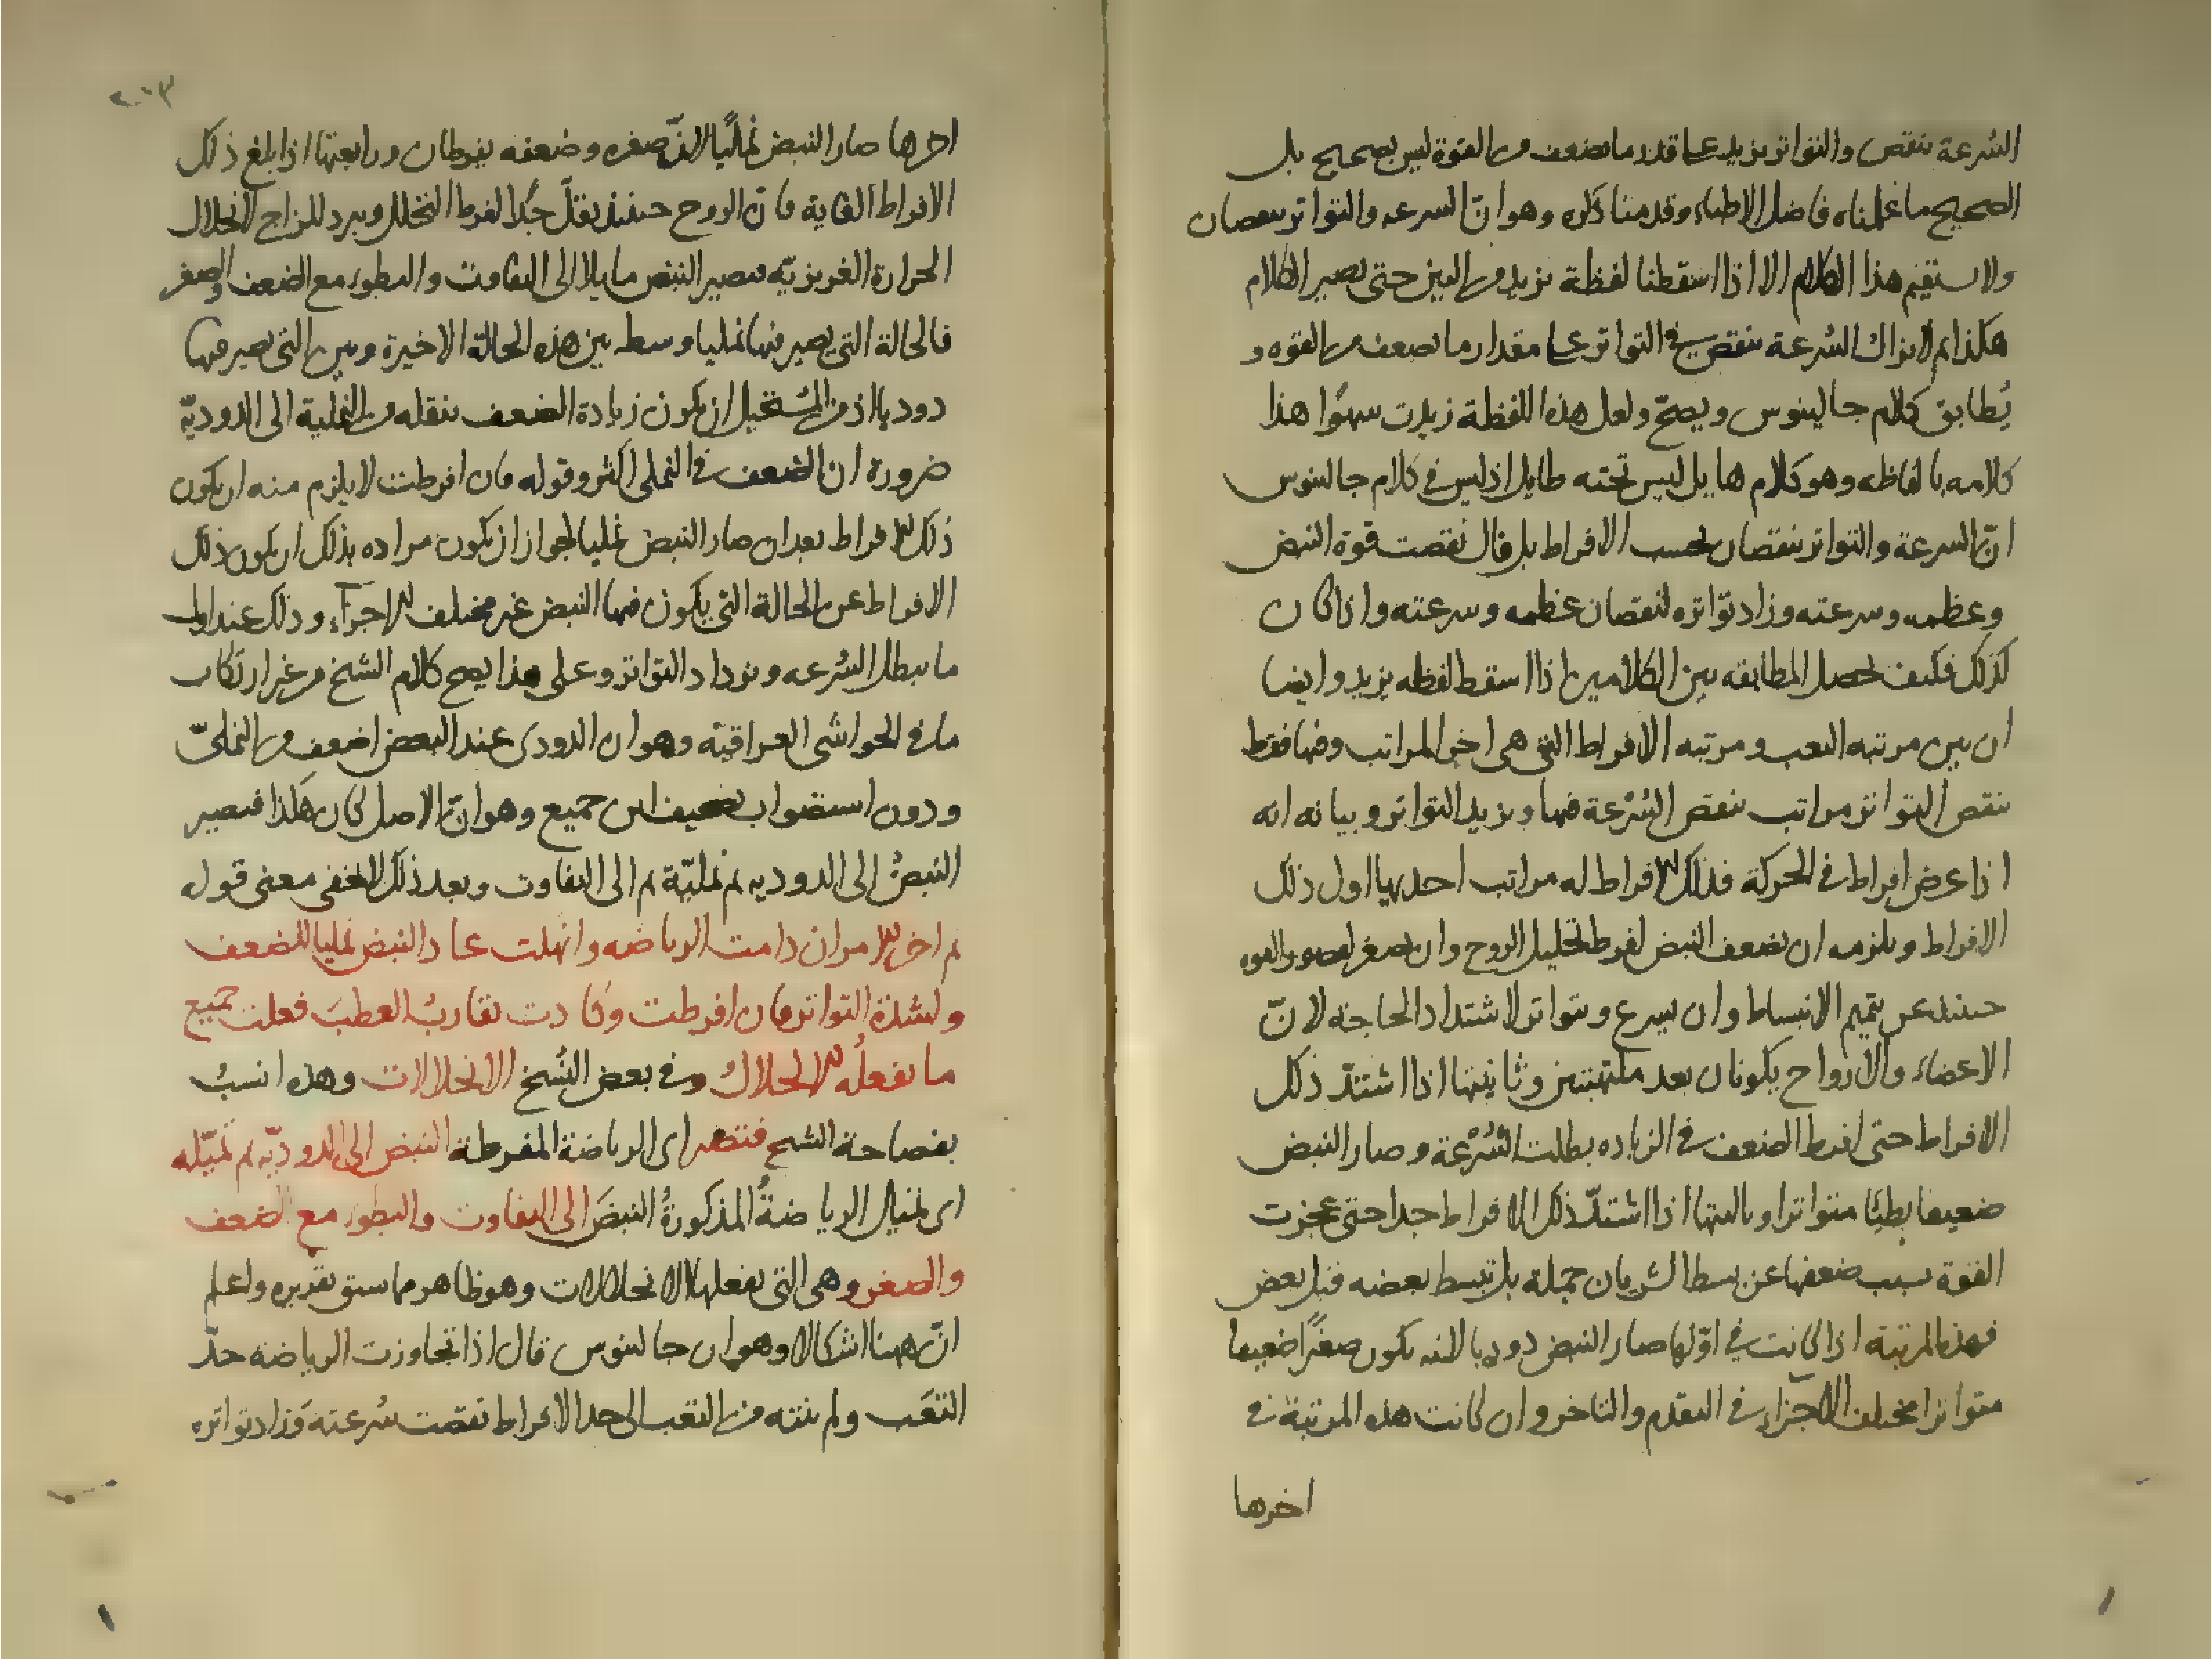 السرعة ينقص والتواتر يزيد على قدر ما يضعف من القوة ليس بصحيح بل
الصحيح ما علمناه فاضل الاطباء وقدمنا ذكره وهو انّ السرعه والتواتر ينقصان
ولا يستقيم هذا الكلام الا اذا اسقطنا لفظة يزيد من البين حتى يصير الكلام
هكذا ثم لا يزال السرعة ينقص في التواتر على مقدار ما يضعف من القوه و
يُطابق كلام جالينوس ويصحّ ولعل هذه اللفظة زيدت سهوًا هذا
كلامه بالفاظه وهو كلام هايل ليس تحته طايل اذ ليس في كلام جالينوس
انّ السرعة والتواتر ينقصان بحسب الافراط بل قال نقصت قوة النبض
وعظمه وسرعته وزاد تواتره لنقصان عظمه وسرعته واذا كان
كذلك فكيف يحصل المطابقه بين الكلامين اذا اسقط لفظه يزيد وايضا
ان بين مرتبه التعب ومرتبه الافراط التي هي اخر المراتب وفيها فقط
ينقص التواتر مراتب ينقص السُرْعة فيها ويزيد التواتر وبيانه انه
اذا عرض افراط في الحركة فذلك الافراط له مراتب احديها اول ذلك
الافراط ويلزمه ان يضعف النبض لفرط تحليل الروح وان يصغر لقصور القوه
حينئذ عن تتميم الانبساط وان يسرع ويتواتر لاشتداد الحاجة لانّ
الاعضاء والارواح يكونان بعد ملتهبتين وثانيتها اذا اشتدّ ذلك
الافراط حتى افرط الضعف في الزياده بطلت السُرْعة وصار النبض
ضعيفا بطيًا متواترا وثالثتها اذا اشتدّ ذلك الافراط جدا حتى عجزت
القوة بسبب ضعفها عن بسط الشريان جملة بل تبسط بعضه قبل بعض
فهذه المرتبة اذا كانت في اوّلها صار النبض دوديا لانه يكون صغيرًا ضعيفا
متواترا مختلف الاجزاء في التقدم والتاخر وان كانت هذه المرتبة في
اخرها
٢٠٣
اخرها صار النبض نمليًا لانّ صغره وضعفه يفرطان ورابعتها اذا بلغ ذلك
الافراط الغاية فانّ الروح حينئذ يقلّ جدًا لفرط التخلل ويبرد المزاج لانحلال
الحرارة الغريزيّه فيصير النبض مايلا الى التفاوت والبطؤ مع الضعف والصغر
فالحالة التي يصير فيها نمليا وسط بين هذه الحالة الاخيرة وبين التي يصير فيها
دوديا اذ من المستحيل ان يكون زيادة الضعف ينقله من النملية الى الدوديّة
ضرورة ان الضعف في النملي اكثر وقوله فان افرطت لا يلزم منه ان يكون
ذلك الافراط بعد ان صار النبض نمليا لجواز ان يكون مراده بذلك ان يكون ذلك
الافراط عن الحالة التي يكون فيها النبض غير مختلف الاجزآء وذلك عند اول
ما يبطل السُرعه ويزداد التواتر وعلى هذا يصح كلام الشيخ من غير ارتكاب
ما في الحواشي العراقية وهو ان الدودى عند البعض اضعف من النمليّ
ودون استصواب تضعيف ابن جميع وهو انّ الاصل كان هكذا فيصير
النبضُ الى الدوديه ثم نمليّة ثم الى التفاوت وبعد ذلك لا يخفى معنى قوله
ثم اخر الامر ان دامت الرياضه وانهكت عاد النبض نمليا للضعف
ولشدة التواتر فان افرطت وكادت تقاربُ العطبَ فعلت جميع
ما تفعلُه الانحلالُ وفي بعض النُسخ الانحلالات وهذه انسبُ
بفصاحة الشيخ فتصير اى الرياضة المفرطة النبض الى الدوديّه ثم تميّله
اى تميال الرياضةُ المذكورةُ النبضَ الى التفاوت والبطؤ مع الضعف
والصغر وهي التي تفعلها الانحلالات وهو ظاهر مما سبق تقديره واعلم
انّ ههنا اشكالا وهو ان جالينوس قال اذا تجاوزت الرياضه حدّ
التعَب ولم ينته من التعب الى حد الافراط نقصت سُرعته وَزاد تواتره